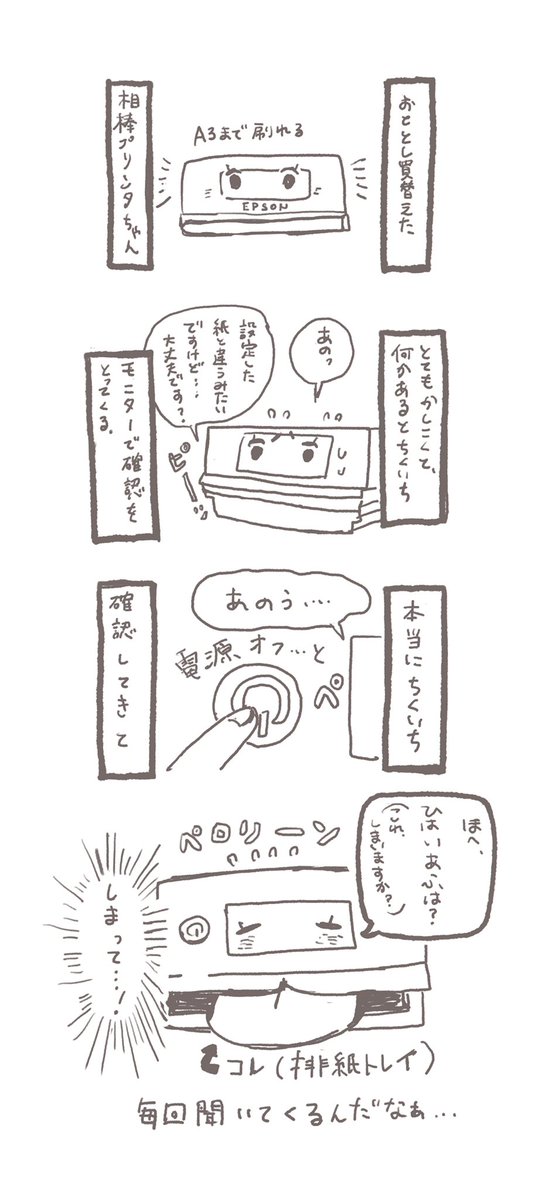 おととし買替えた
A3まで刷れる
EPSON
相棒プリンタちゃん
とてもかしこくて、
何かあるとちくいち
あのっ
設定した
紙と違うみたい
ですけど…
大丈夫です?
ピーッ
モニターで確認を
とってくる。
本当にちくいち
あのう…
電源、オフ…と
ペ
確認してきて
ほへ、
ひはいあふは?
(これ、
しまいますか?)
ペロリーン
しまって…!
コレ(排紙トレイ)
毎回聞いてくるんだなぁ…